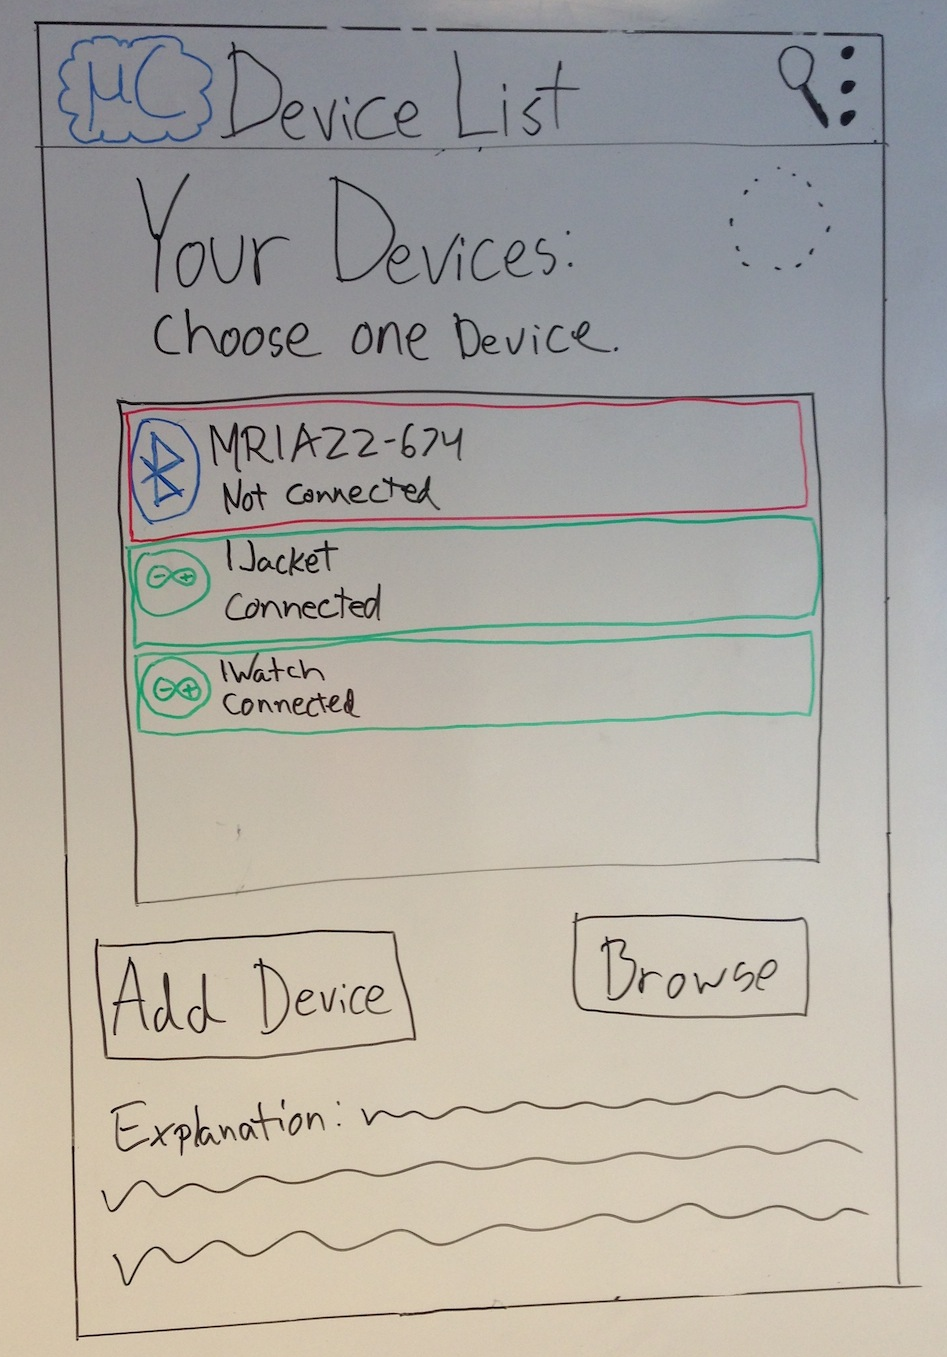 μC Device List
Your Devices:
Choose one Device.
MR1A22-674
Not Connected
IJacket
Connected
IWatch
Connected
Add Device
Browse
Explanation: